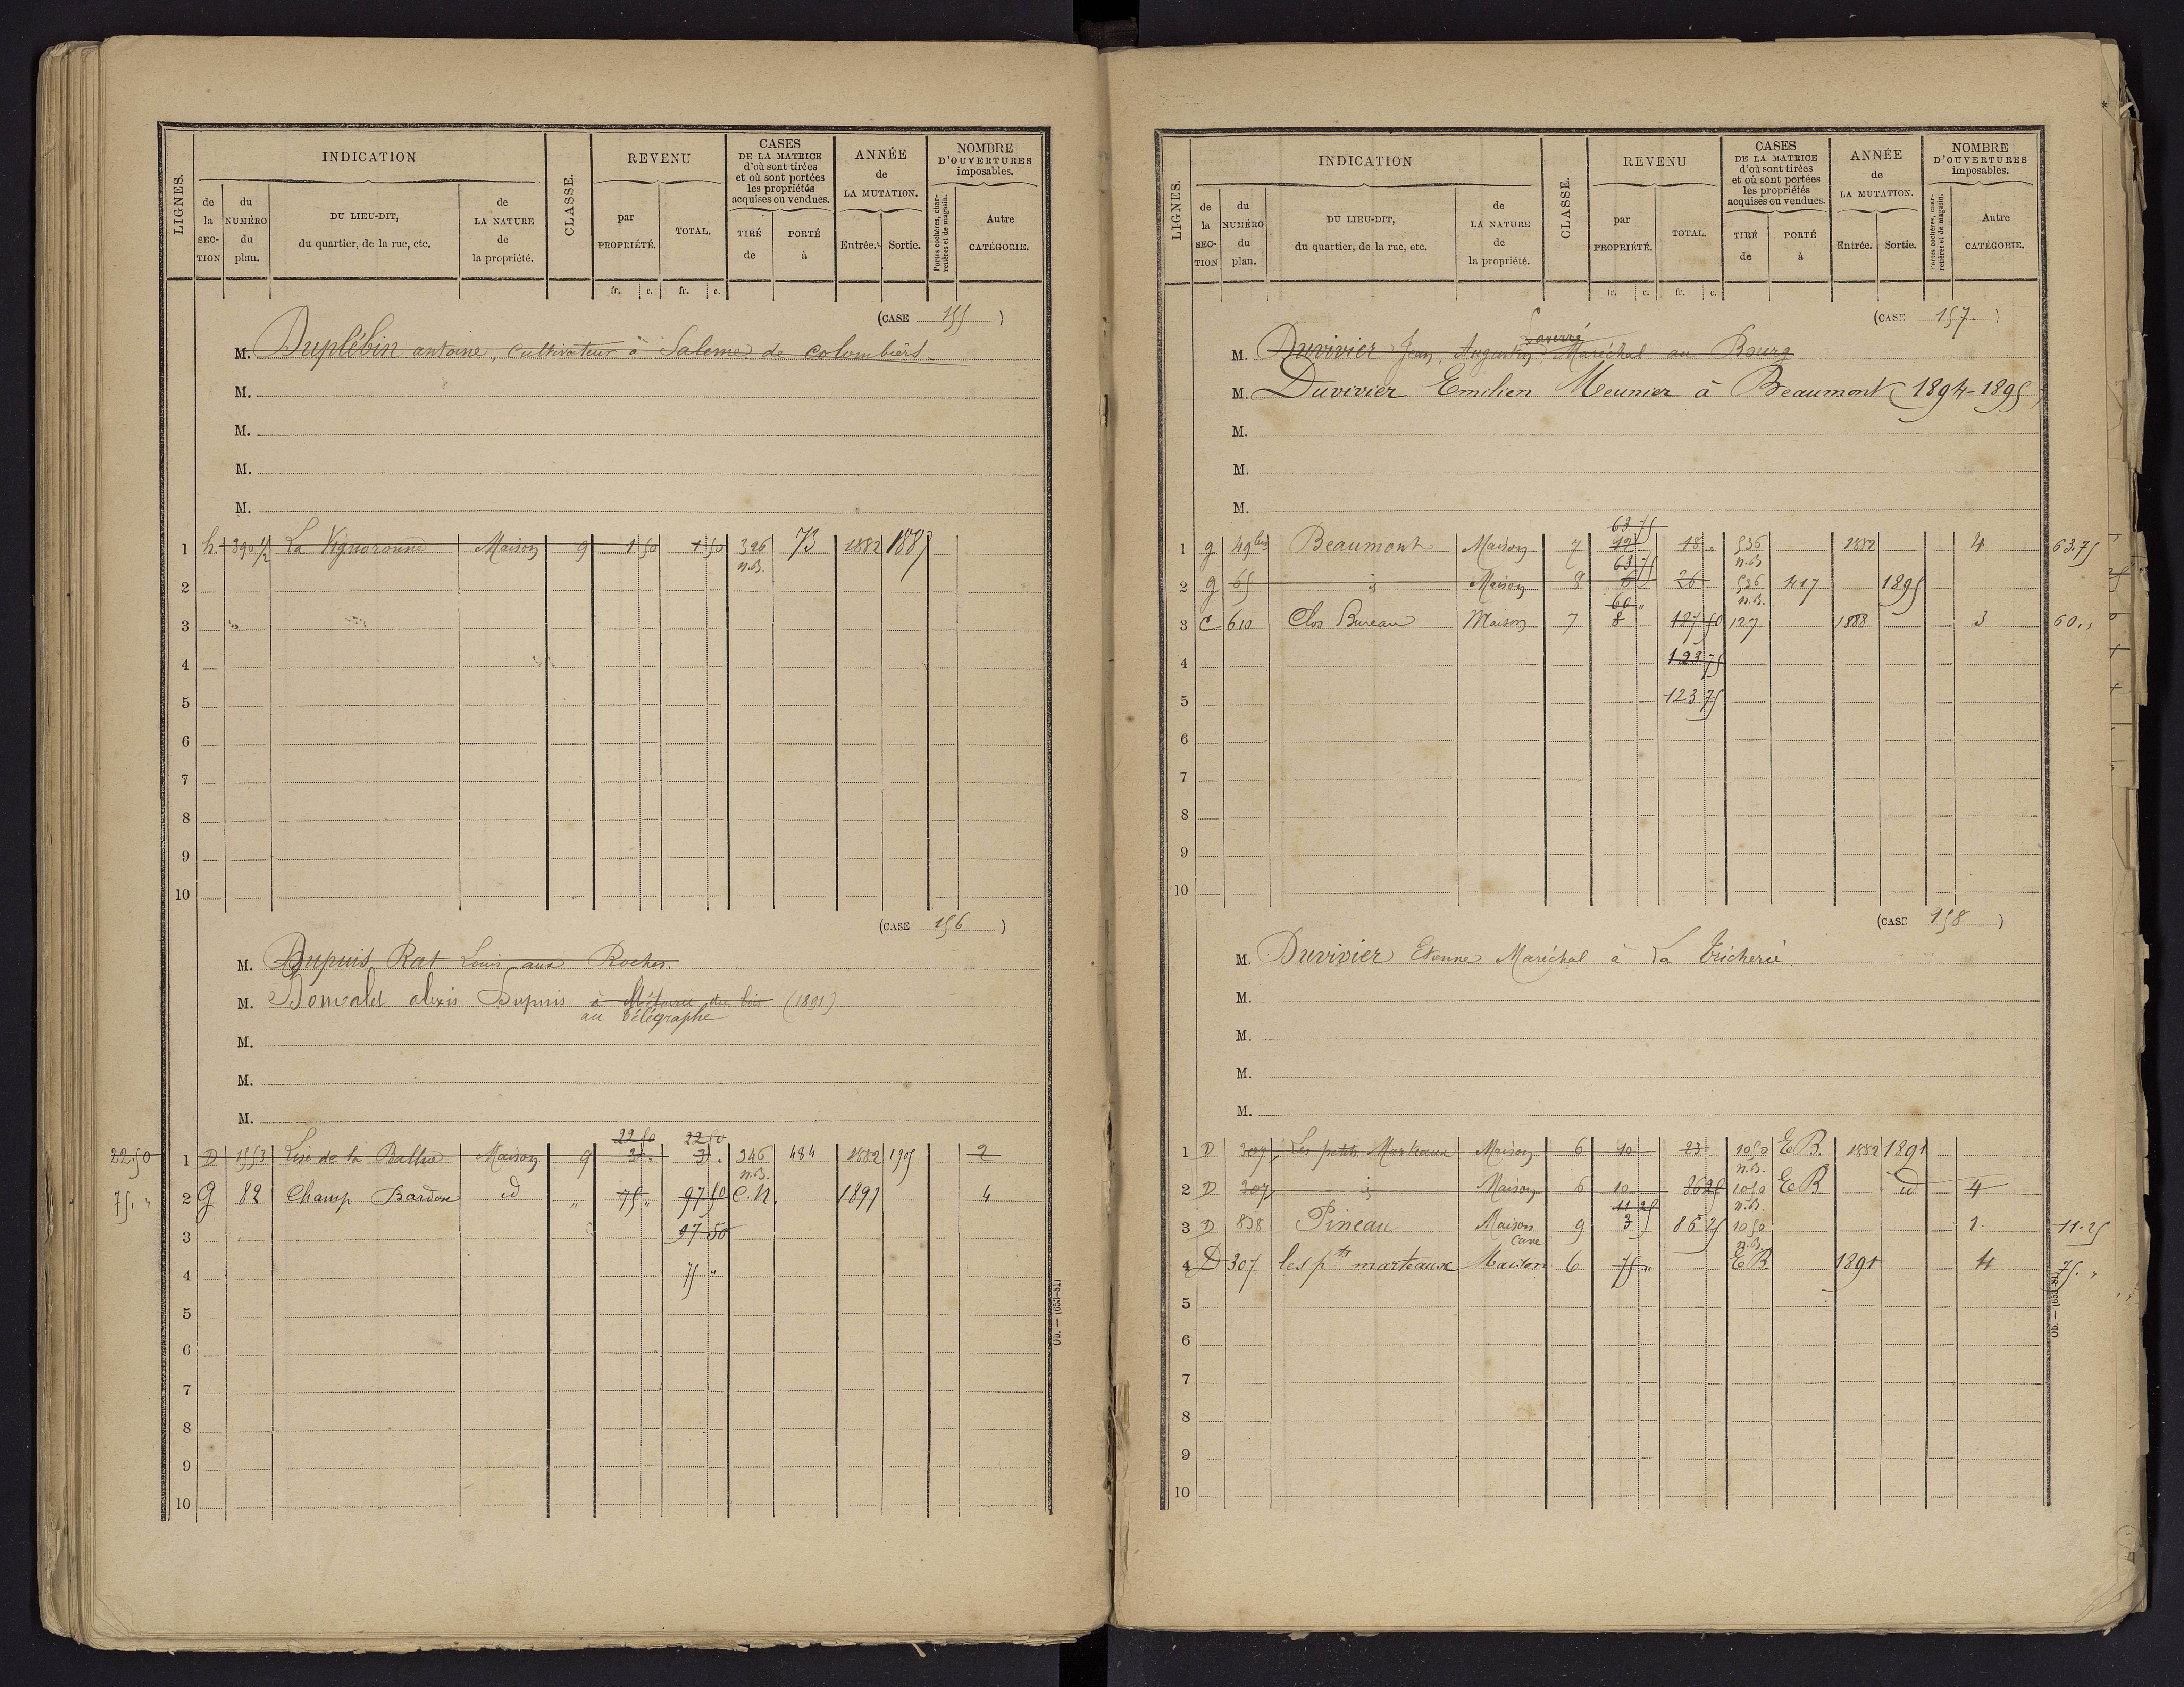 LIGNES. INDICATION CLASSE. REVENU CASES DE LA MATRICE d'où sont tirées et où sont portées les propriétés acquises ou vendues. ANNÉE de LA MUTATION. NOMBRE D'OUVERTURES imposables.
de la SEC-TION du NUMÉRO du plan. DU LIEU-DIT, du quartier, de la rue, etc. de LA NATURE de la propriété. par PROPRIÉTÉ. TOTAL. TIRÉ de PORTÉ à Entrée. Sortie. Portes cochères, charretières et de magasin. Autre CATÉGORIE.
fr. c. fr. c.
(CASE 155)
M. Duplébin antoine, cultivateur à Salerne de colombiers
M.
M.
M.
M.
1 h 390 1/2 La Vignoronne Maison 9 1 50 1 50 326 73 1882 1887
n.B.
2
3
4
5
6
7
8
9
10
(CASE 156)
M. Dupuis Rat Louis aux Roches.
M. Bonvalet alexis Dupuis à Métairie du bois (1891)
au télégraphe
M.
M.
M.
22 50 22 50
22.50 1 D 1553 de la Maison 9 3 . 3 . 246 484 1882 1905 2
n.B.
75. " 2 G 82 Champ Bardon id " 75 " 97 50 C.N. 1891 4
3 97 50
4 75 "
5
6
7
8
9
10
Ob. — (653-81)
LIGNES. INDICATION CLASSE. REVENU CASES DE LA MATRICE d'où sont tirées et où sont portées les propriétés acquises ou vendues. ANNÉE de LA MUTATION. NOMBRE D'OUVERTURES imposables.
de la SEC-TION du NUMÉRO du plan. DU LIEU-DIT, du quartier, de la rue, etc. de LA NATURE de la propriété. par PROPRIÉTÉ. TOTAL. TIRÉ de PORTÉ à Entrée. Sortie. Portes cochères, charretières et de magasin. Autre CATÉGORIE.
fr. c. fr. c.
(CASE 157.)
M. Duvivier Jean, Augustin Maréchal au Bourg
M. Duvivier Emilien Meunier à Beaumont (1894-1895)
M.
M.
M.
63 75
1 g 49 bis Beaumont Maison 7 12 18 " 536 1882 4 63.75
63 75 n.B
2 g 65 id Maison 8 6 26 536 417 1895
60 " n.B.
3 C 610 Clos Bureau Maison 7 8 187 50 127 1888 3 60 "
4 123 75
5 123 75
6
7
8
9
10
(CASE 158)
M. Duvivier Etienne Maréchal à La tricherie.
M.
M.
M.
M.
1 D 307 Les petits Marteaux Maison 6 10 23 1050 E B. 1882 1891
n.B.
2 D 307 id Maison 6 10 36 25 1050 E B id 4
11 25 n.B.
3 D 838 Pineau Maison 9 3 86 25 1050 1. 11.25
Cave n.B.
4 D 307 les pts marteaux Maison 6 75 " E B. 1891 4 75. "
5
6
7
8
9
10
Ob. — (653-81)